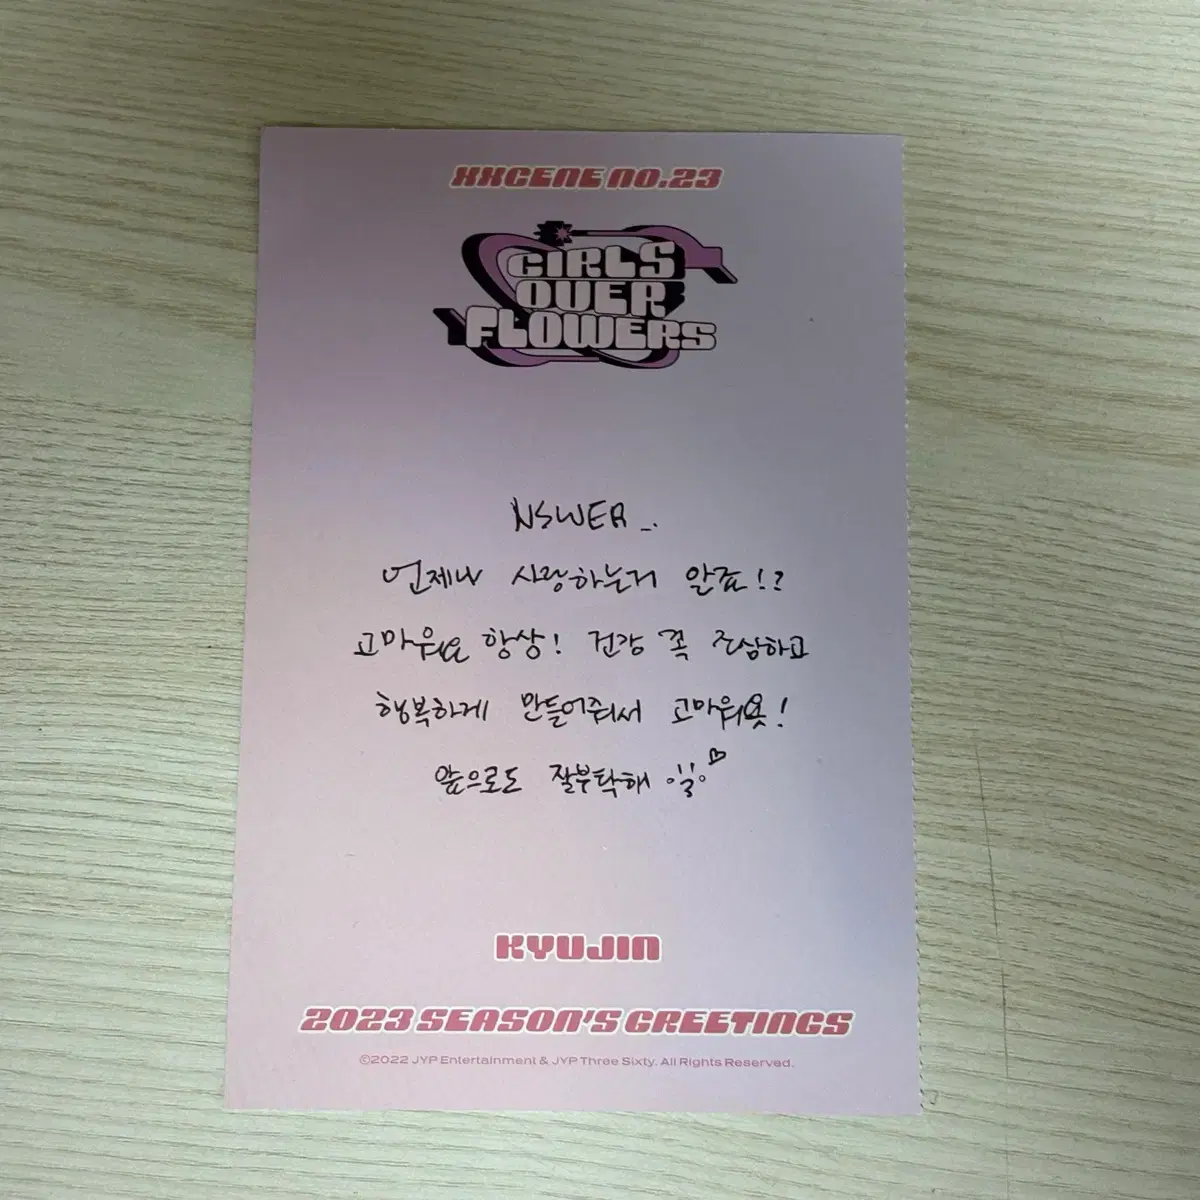 XXCENE NO.23
GIRLS
OVER
FLOWERS
NSWER_.
언제나 사랑하는거 알죠!?
고마워요 항상! 건강 꼭 조심하고
행복하게 만들어줘서 고마워욧!
앞으로도 잘부탁해
KYUJIN
2023 SEASON'S GREETINGS
©2022 JYP Entertainment & JYP Three Sixty. All Rights Reserved.